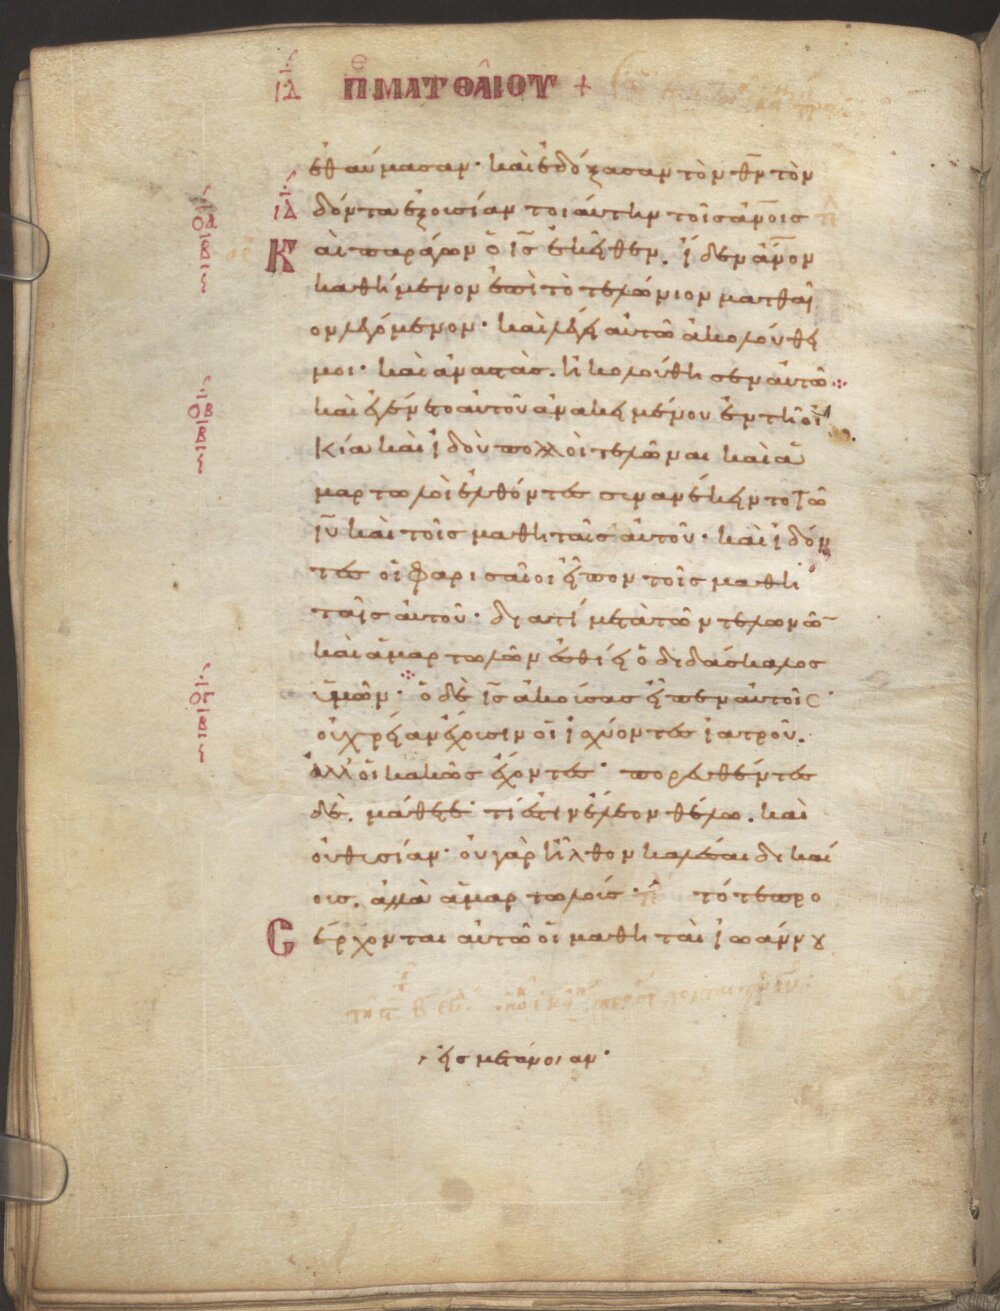 ΙΔ Π ΜΑΤΘΑΙΟΥ +
ἐθαύμασαν· καὶ ἐδόξασαν τὸν θν τὸν
ΙΔ δόντα ἐξουσίαν τοιαύτην τοῖς ἀνοις
ΟΑ Β Καὶ παράγων ὁ ις ἐκεῖθεν. ἴδεν ἄνον
καθήμενον ἐπὶ τὸ τελώνιον ματθαῖ
ον λεγόμενον· καὶ λέγει αὐτῶ ἀκολούθει
μοι· καὶ ἀναστὰς. ἠκολούθησεν αὐτῶ
ΟΒ Β καὶ ἐγένετο αὐτοῦ ἀνακειμένου ἐν τῆ οἰ
κία καὶ ἰδοὺ πολλοὶ τελῶναι καὶ ἁ
μαρτωλοὶ ἐλθόντες συνανέκειντο τῶ
ιυ καὶ τοῖς μαθηταῖς αὐτοῦ· καὶ ἰδόν
τες οἱ φαρισαῖοι εἶπον τοῖς μαθη
ταῖς αὐτοῦ· διατί μετὰ τῶν τελωνῶ
καὶ ἁμαρτωλῶν ἐσθίει ὁ διδάσκαλος
ΟΓ Β ὑμῶν· ὁ δὲ ις ἀκούσας εἶπεν αὐτοῖς·
οὐ χρείαν ἔχουσιν οἱ ἰσχύοντες ἰατροῦ.
ἀλλ οἱ κακῶς ἔχοντες· πορευθέντες
δὲ. μάθετε· τί ἐστιν ἔλεον θέλω. καὶ
οὐ θυσίαν· οὐ γὰρ ἦλθον καλέσαι δικαί
ους. ἀλλὰ ἁμαρτωλούς· τότε προ
σέρχονται αὐτῶ οἱ μαθηταὶ ἰωάννου
εἰς μετάνοιαν·